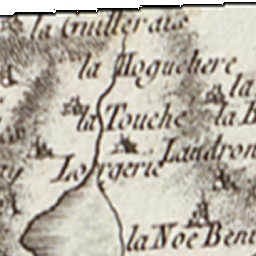 la Guillerais
la Hoguchere
la
la Touche
la B
Landron
Lorgerie
la Noë Bent